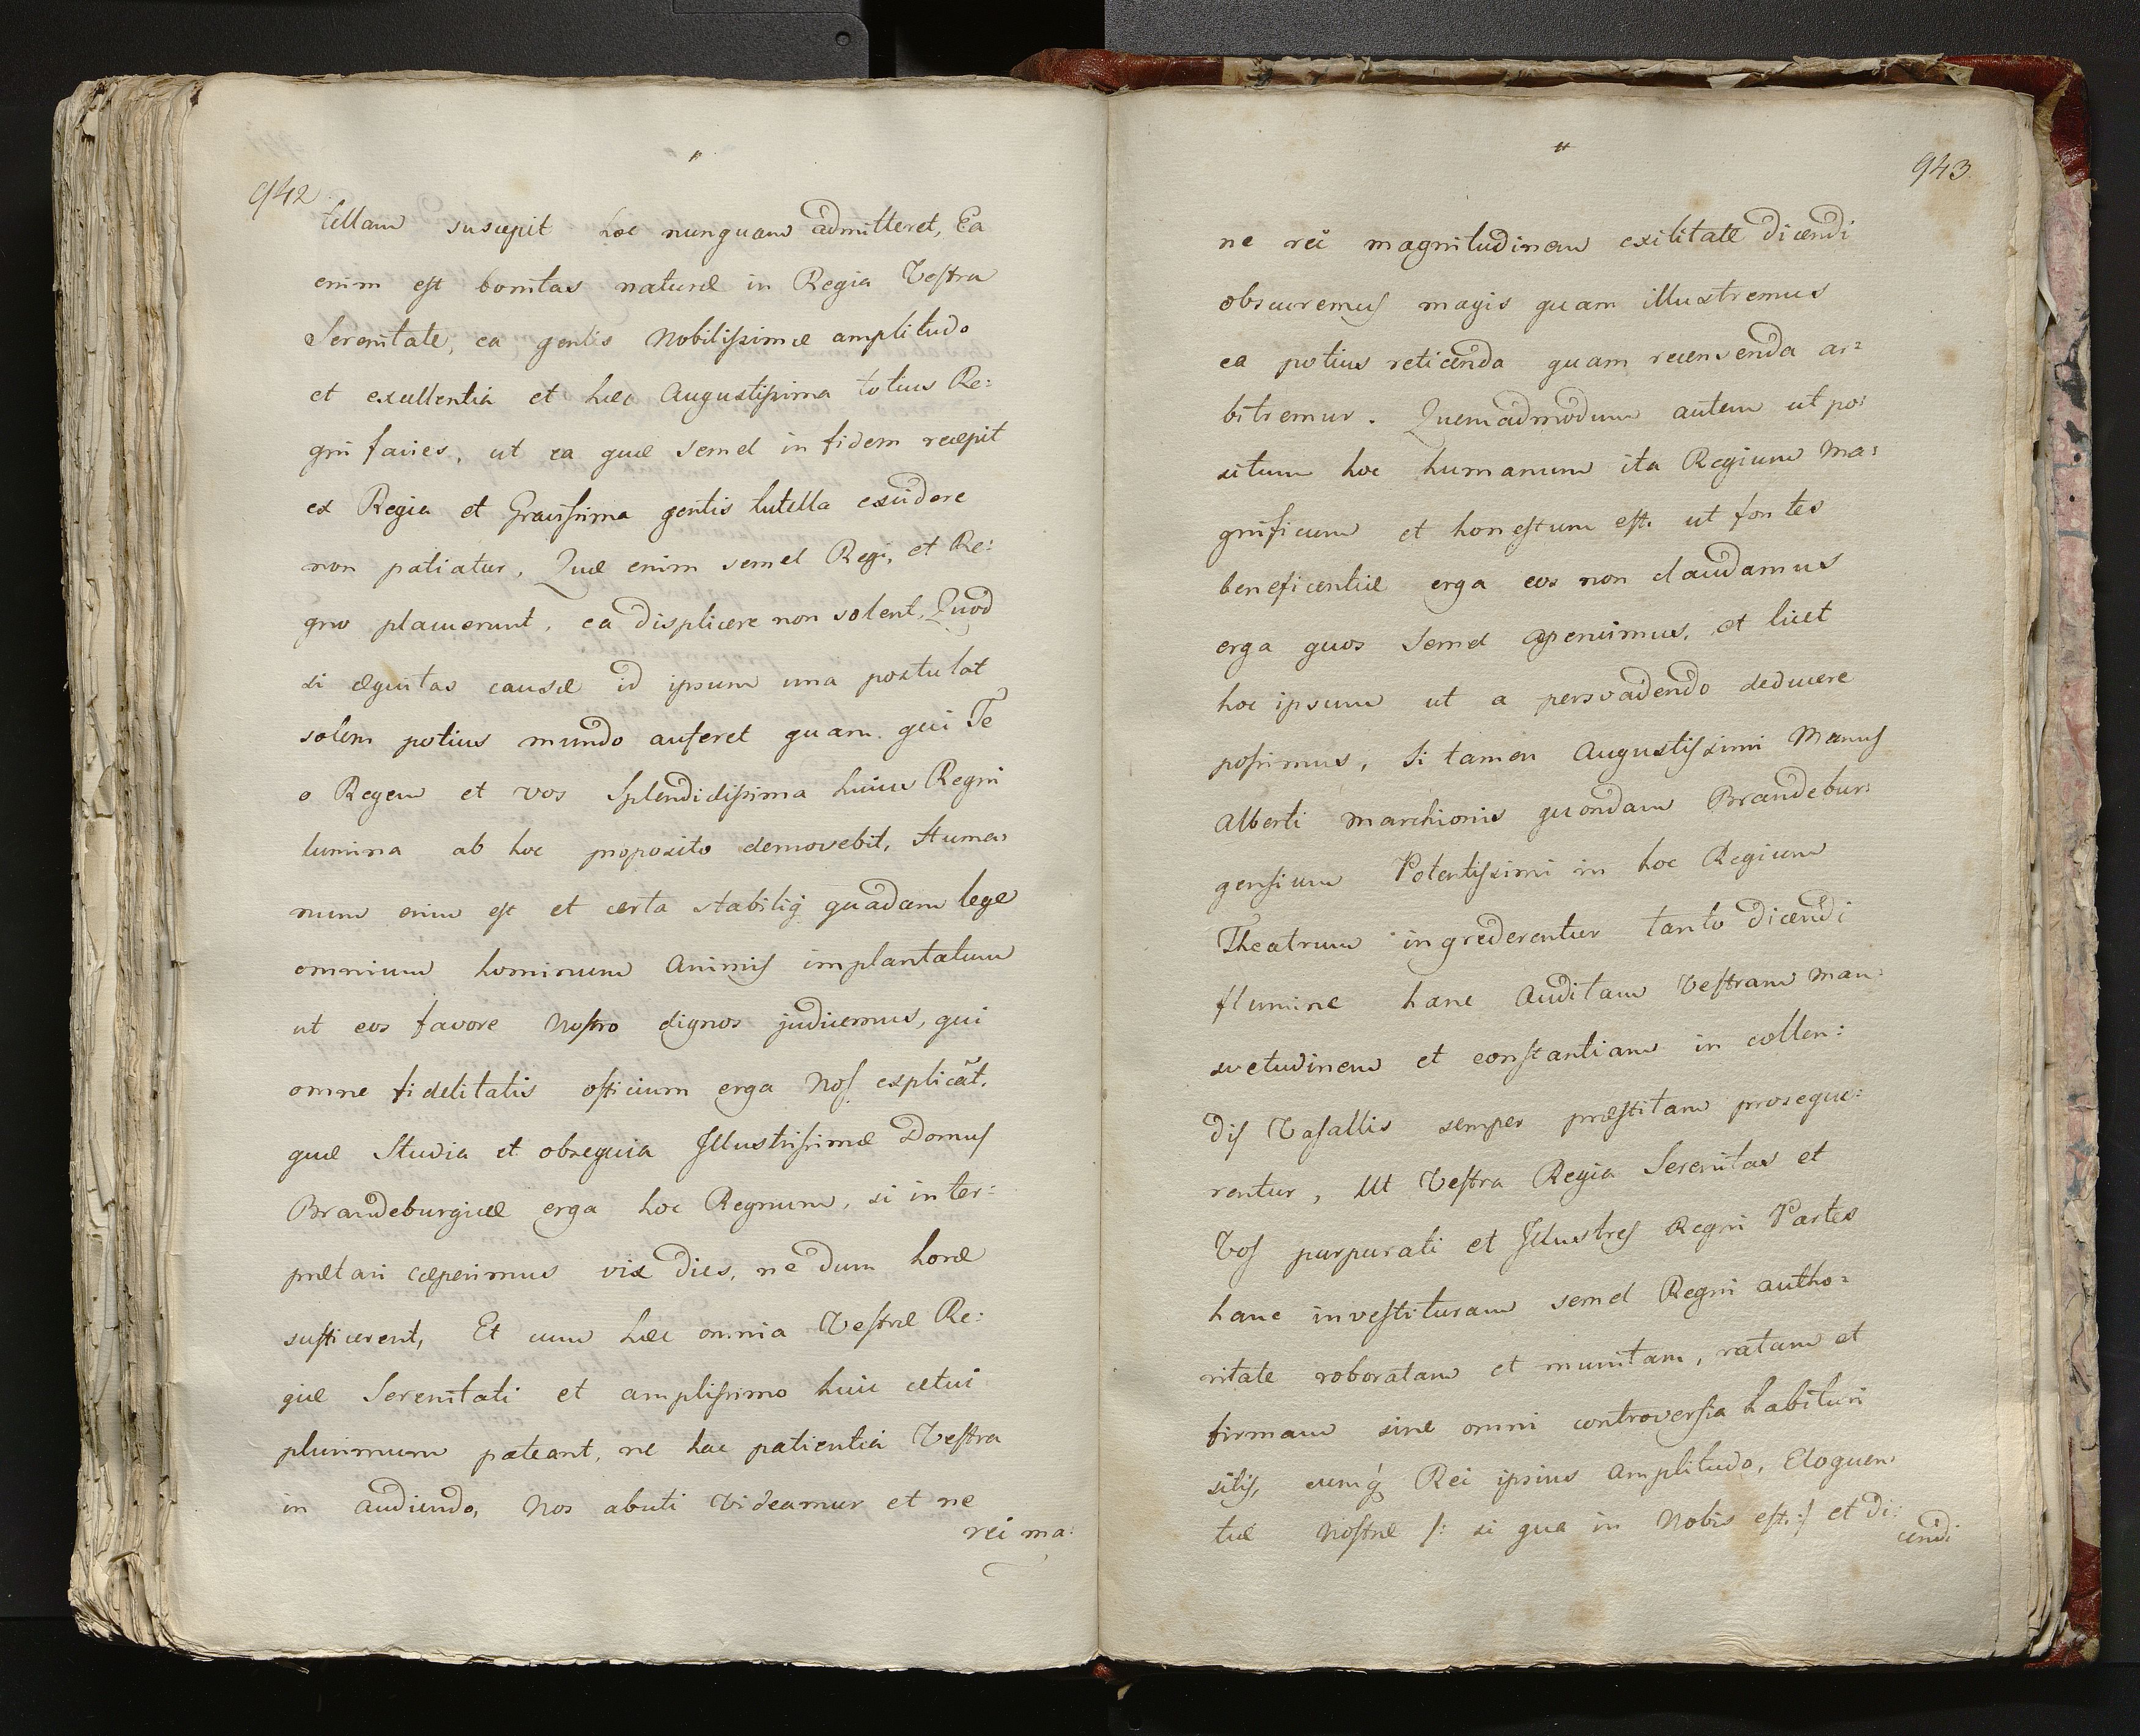 942
tellam suscepit hoc nunquam admitteret, Ea
enim est bonitas naturæ in Regia Vestra
Serenitate, ea gentis Nobilissimæ amplitudo
et excellentia et hæc Augustissima totius Re:
gni facies, ut ea quæ semel in fidem recepit
ex Regia et Gravissima gentis tutella excidere
non patiatur, Quæ enim semel Regi, et Re:
gno placuerunt, ea displicere non solent, Quod
si æquitas causæ id ipsum una postulat
solem potius mundo auferet quam qui Te
o Regem et vos splendidissima huius Regni
lumina ab hoc proposito demovebit, Huma:
num enim est et certa stabiliq quadam lege
omnium hominum animis implantatum
ut eos favore nostro dignos judicemus, qui
omne fidelitatis officium erga Nos explicāt,
quæ Studia et obsequia Illustrissimæ Domus
Brandeburgicæ erga hoc Regnum, si inter:
prætari cæperimus vix dies, ne dum horæ
sufficerent, Et cum hæc omnia Vestræ Re:
giæ Serenitati et amplissimo huic cetui
plurimum pateant, ne hac patientia Vestra
in audiendo, nos abuti videamur et ne
rei ma:
943
ne rei magnitudinem exilitate dicendi
obscuremus magis quam illustremus
ea potius reticenda quam recensenda ar:
bitremur. Quemadmodum autem ut po:
situm hoc humanum ita Regium ma:
gnificum et honestum est. ut fontes
beneficentiæ erga eos non claudamus
erga quos semel aperuimus, et licet
hoc ipsum ut a persvadendo deducere
possimus, si tamen Augustissimi Manus
Alberti Marchionis quondam Brandebur:
gensium Potentissimi in hoc Regium
Theatrum ingrederentur tanto dicendi
flumine hanc auditam Vestram man:
svetudinem et constantiam in collen:
dis Vasallis semper præstitam proseque:
rentur, Ut Vestra Regia Serenitas et
Vos purpurati et Illustres Regni Partes
hanc investituram semel Regni autho:
ritate roboratam et munitam, ratam et
firmam sine omni controversia habituri
sitis, cumq Rei ipsius amplitudo, Eloquen:
tiæ Nostræ /: si qua in Nobis est :/ et di:
cendi